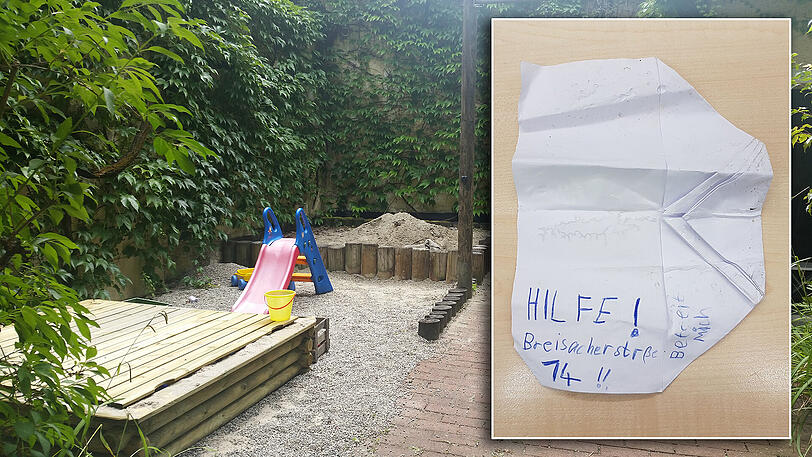 HILFE!
Breisacherstrße
14 !!
Befreit
mich